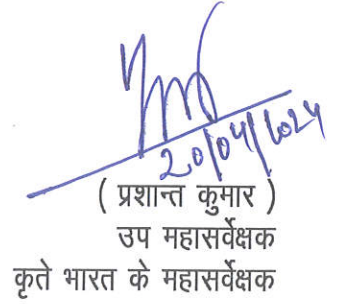 20/04/2024
( प्रशान्त कुमार )
उप महासर्वेक्षक
कृते भारत के महासर्वेक्षक